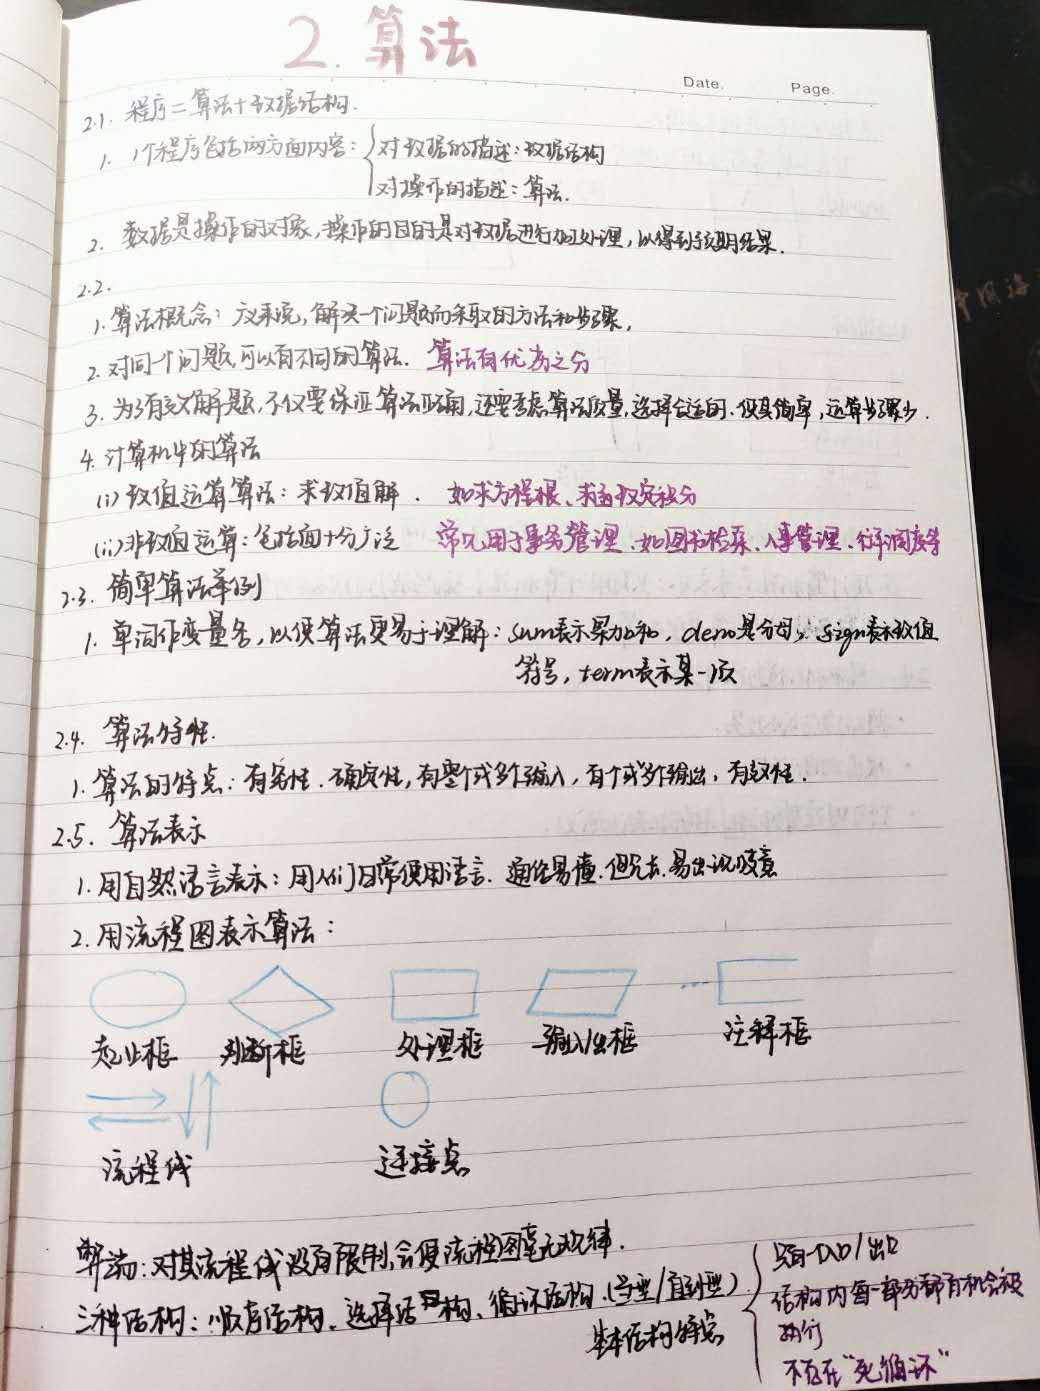 2. 算法
Date. Page.
2.1. 程序=算法+数据结构.
1. 1个程序包括两方面内容: 对数据的描述:数据结构
对操作的描述:算法.
2. 数据是操作的对象,操作的目的是对数据进行加工处理,以得到预期结果.
2.2.
1. 算法概念: 广义来说,解决一个问题而采取的方法和步骤,
2. 对同一个问题,可以有不同的算法. 算法有优劣之分
3. 为了有效解题,不仅要保证算法正确,还要考虑算法质量,选择合适的.使其简单,运算步骤少.
4. 计算机中的算法
(i) 数值运算算法: 求数值解. 如求方程根、求函数定积分
(ii) 非数值运算:包括面十分广泛 常见用于事务管理.如图书检索、人事管理、行车调度等
2.3. 简单算法举例
1. 单词作变量名,以便算法更易于理解: sum表示累加和, deno是分母, sign表示数值
符号, term表示某一项
2.4. 算法特性.
1. 算法的特点: 有穷性. 确定性, 有零个或多个输入, 有个或多个输出, 有效性.
2.5. 算法表示
1. 用自然语言表示: 用人们日常使用语言. 通俗易懂.但冗长.易出现歧意
2. 用流程图表示算法:
起止框 判断框 处理框 输入/出框 注释框
流程线 连接点
弊端: 对其流程线没有限制,会使流程图毫无规律.
三种结构: 顺序结构、选择结构、循环结构.(当型/直到型)
基本结构特点
只有一个入口/出口
结构内每一部分都有机会被
执行
不存在“死循环”